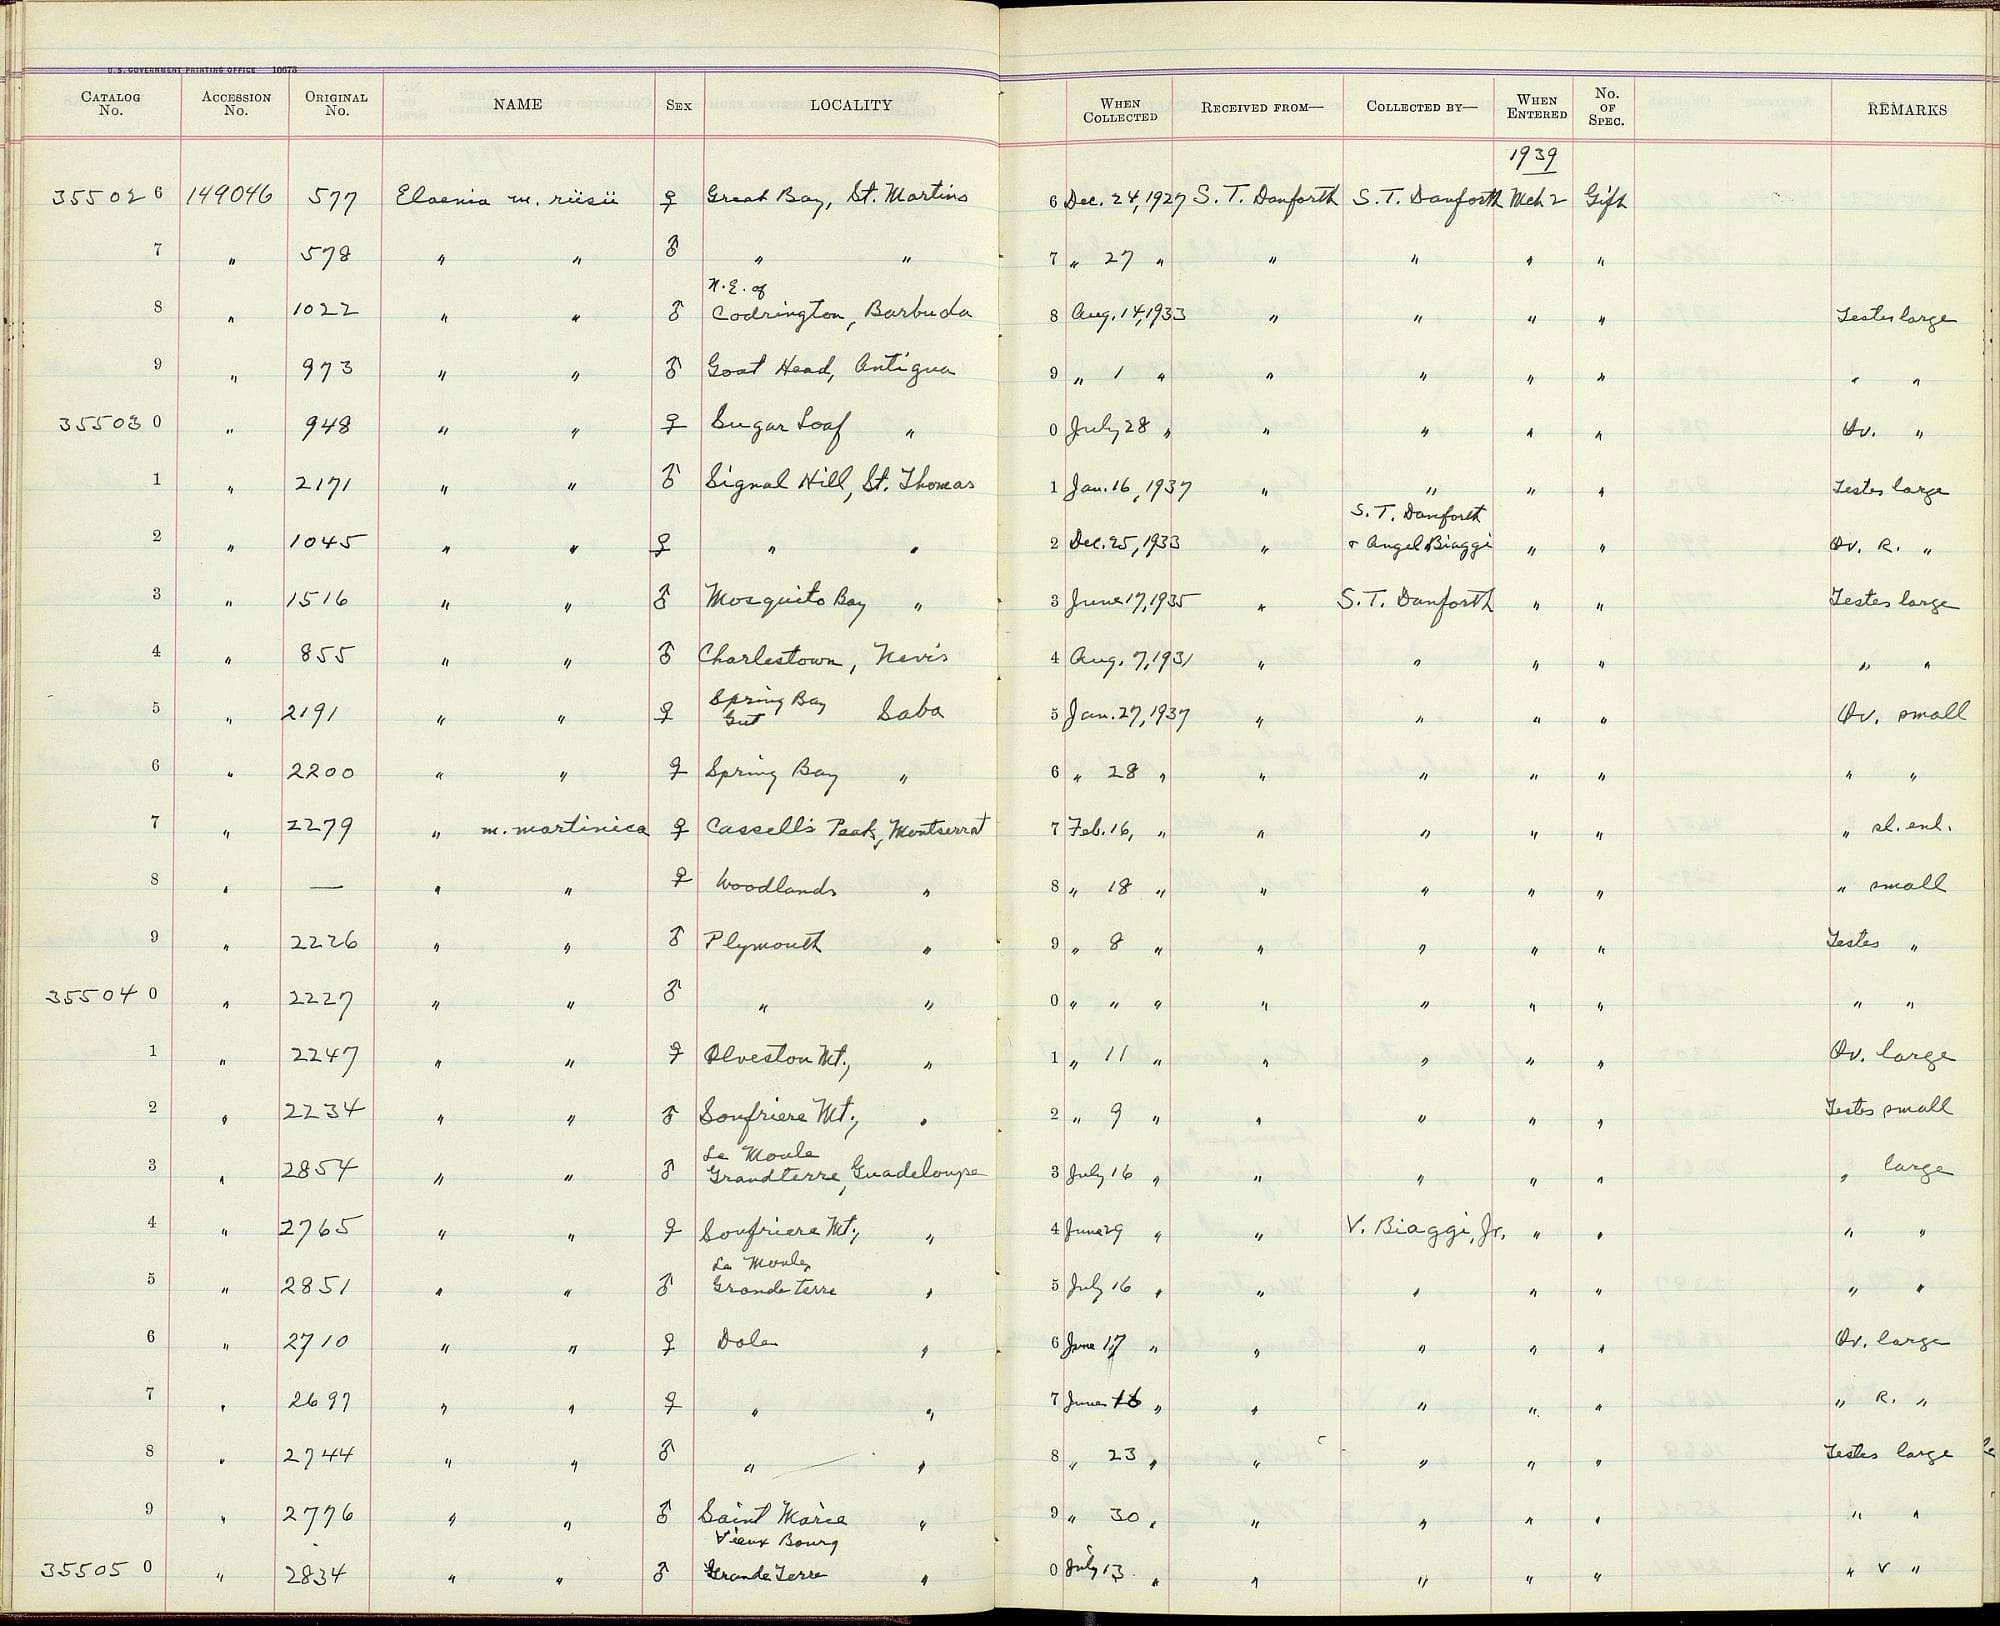 U. S. GOVERNMENT PRINTING OFFICE 10673
CATALOG No. ACCESSION No. ORIGINAL No. NAME SEX LOCALITY WHEN COLLECTED RECEIVED FROM— COLLECTED BY— WHEN ENTERED No. OF SPEC. REMARKS
1939
35502 6 149046 577 Elaenia m. riisii ♀ Great Bay, St. Martins 6 Dec. 24, 1927 S. T. Danforth S. T. Danforth Mch 2 Gift
7 " 578 " " ♂ " " 7 " 27 " " " " "
N. E. of
8 " 1022 " " ♂ Codrington, Barbuda 8 Aug. 14, 1933 " " " " Testes large
9 " 973 " " ♂ Goat Head, Antigua 9 " 1 " " " " " " "
35503 0 " 948 " " ♀ Sugar Loaf " 0 July 28 " " " " " Ov. "
1 " 2171 " " ♂ Signal Hill, St. Thomas 1 Jan. 16, 1937 " " " " Testes large
S. T. Danforth
2 " 1045 " " ♀ " " 2 Dec. 25, 1933 " & Angel Biaggi " " Ov. R. "
3 " 1516 " " ♂ Mosquito Bay " 3 June 17, 1935 " S. T. Danforth " " Testes large
4 " 855 " " ♂ Charlestown, Nevis 4 Aug. 7, 1931 " " " " " "
Spring Bay
5 " 2191 " " ♀ Gut Saba 5 Jan. 27, 1937 " " " " Ov. small
6 " 2200 " " ♀ Spring Bay " 6 " 28 " " " " " " "
7 " 2279 " m. martinica ♀ Cassell's Peak, Montserrat 7 Feb. 16, " " " " " " sl. enl.
8 " — " " ♀ Woodlands " 8 " 18 " " " " " " small
9 " 2226 " " ♂ Plymouth " 9 " 8 " " " " " Testes "
35504 0 " 2227 " " ♂ " " 0 " " " " " " " " "
1 " 2247 " " ♀ Olveston Mt., " 1 " 11 " " " " " Ov. large
2 " 2234 " " ♂ Soufriere Mt., " 2 " 9 " " " " " Testes small
Le Moule
3 " 2854 " " ♂ Grandterre, Guadeloupe 3 July 16 " " " " " " large
4 " 2765 " " ♀ Soufriere Mt., " 4 June 29 " " V. Biaggi, Jr. " " " "
Le Moule,
5 " 2851 " " ♂ Grande terre " 5 July 16 " " " " " " "
6 " 2710 " " ♀ Dole " 6 June 17 " " " " " Ov. large
7 " 2697 " " ♀ " " 7 June 16 " " " " " " R. "
8 " 2744 " " ♂ " " 8 " 23 " " " " " Testes large
9 " 2776 " " ♂ Saint Marie " 9 " 30 " " " " " " "
Vieux Bourg
35505 0 " 2834 " " ♂ Grande Terre " 0 July 13 " " " " " " V "